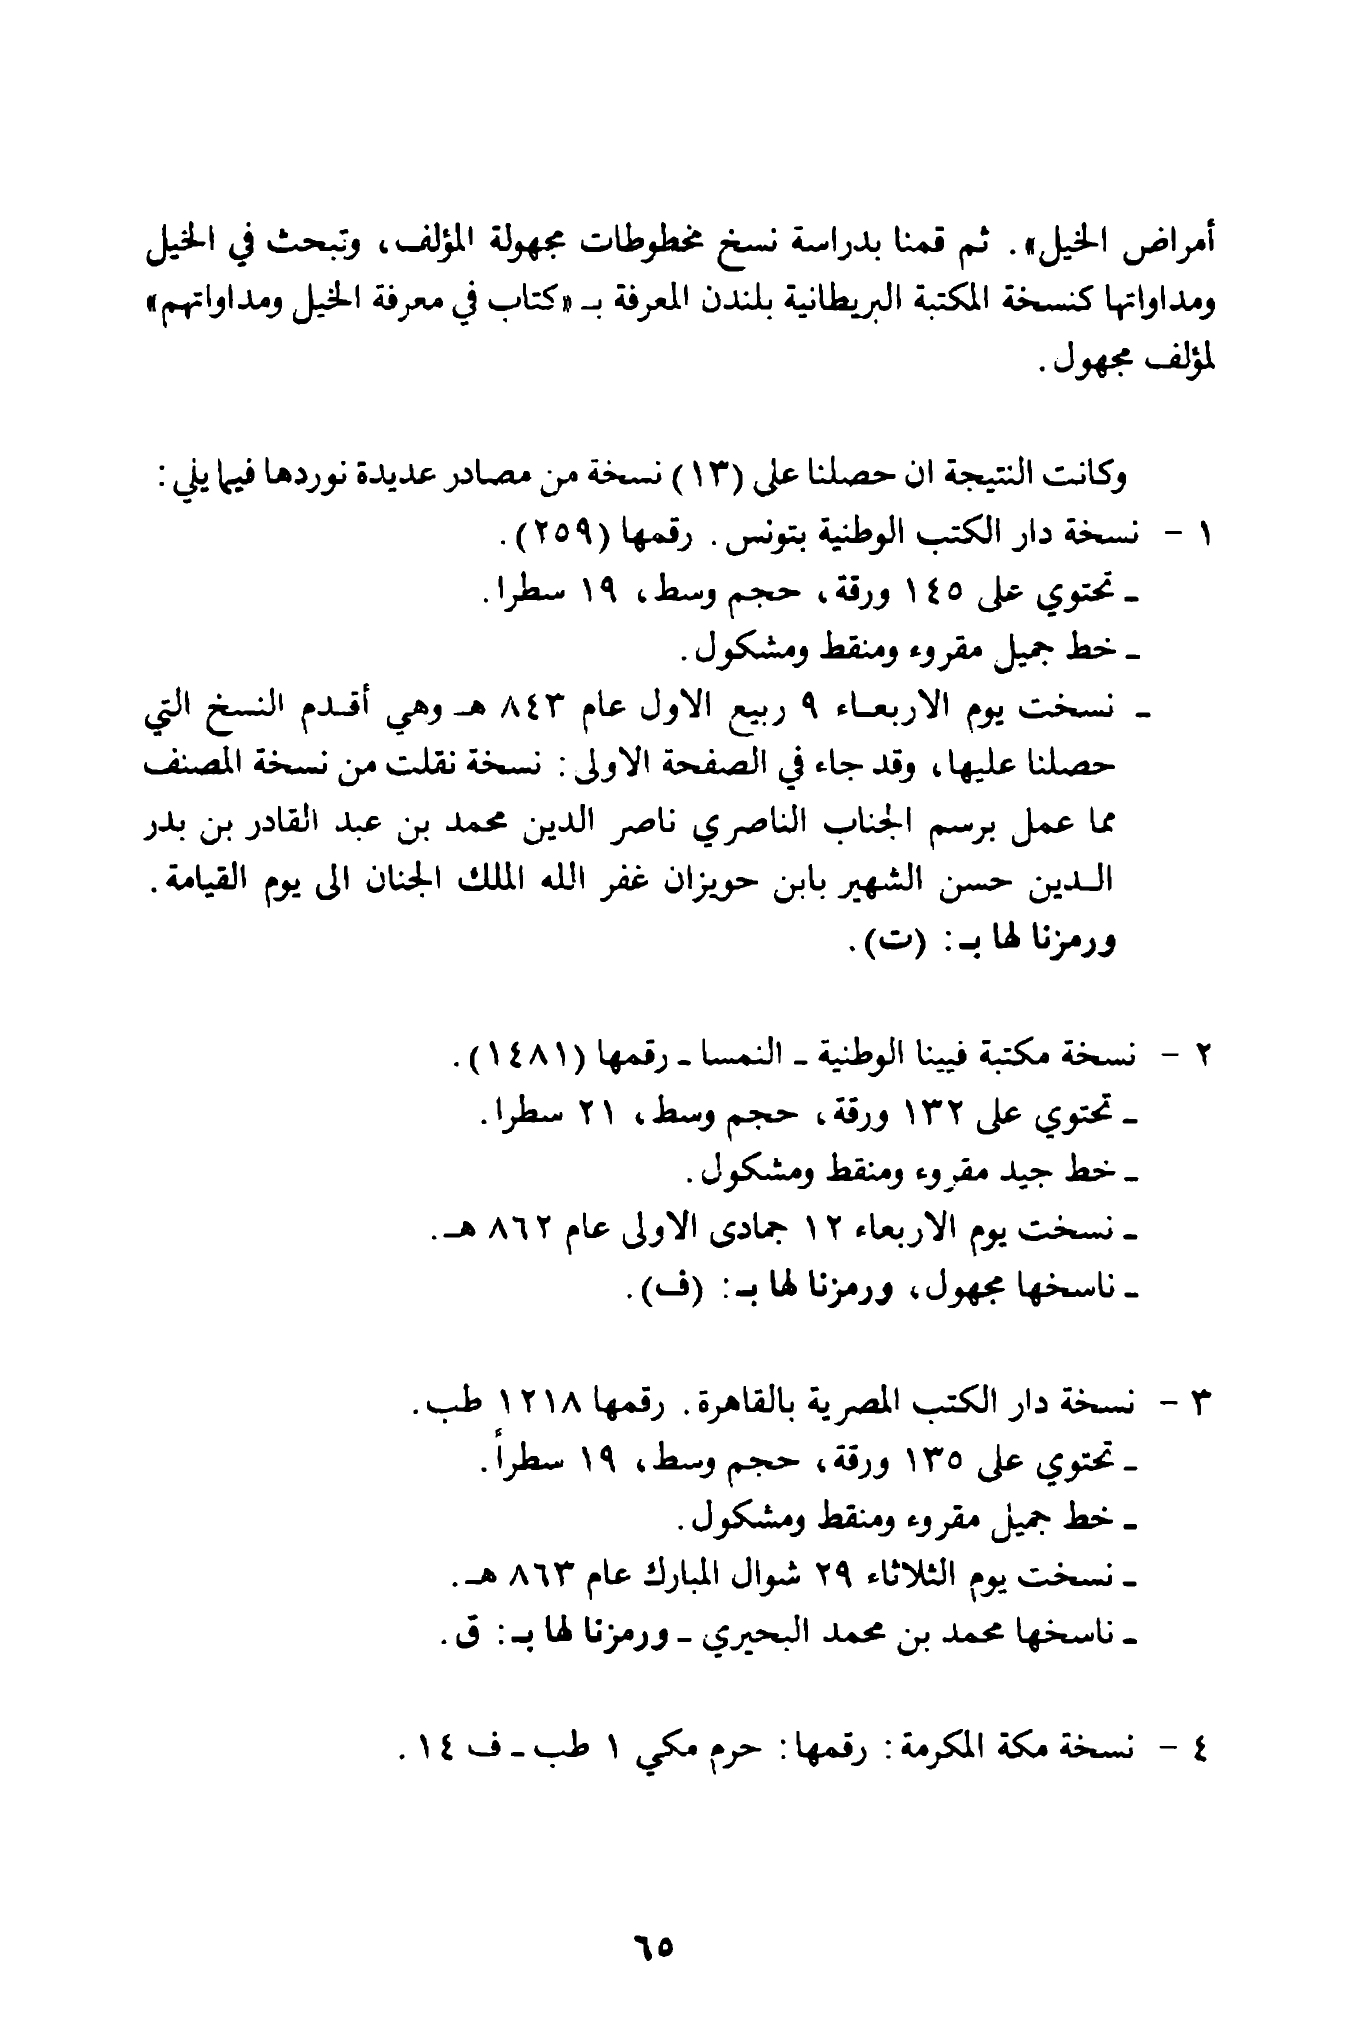 أمراض الخيل». ثم قمنا بدراسة نسخ مخطوطات مجهولة المؤلف، وتبحث في الخيل
ومداواتها كنسخة المكتبة البريطانية بلندن المعرفة بـ «كتاب في معرفة الخيل ومداواتهم»
لمؤلف مجهول.
وكانت النتيجة ان حصلنا على (١٣) نسخة من مصادر عديدة نوردها فيما يلي:
١ - نسخة دار الكتب الوطنية بتونس. رقمها (٢٥٩).
ـ تحتوي على ١٤٥ ورقة، حجم وسط، ١٩ سطرا.
ـ خط جميل مقروء ومنقط ومشكول.
ـ نسخت يوم الاربعاء ٩ ربيع الاول عام ٨٤٣ هـ وهي أقدم النسخ التي
حصلنا عليها، وقد جاء في الصفحة الاولى: نسخة نقلت من نسخة المصنف
مما عمل برسم الجناب الناصري ناصر الدين محمد بن عبد القادر بن بدر
الدين حسن الشهير بابن حويزان غفر الله الملك الجنان الى يوم القيامة.
ورمزنا لها بـ: (ت).
٢ - نسخة مكتبة فيينا الوطنية ـ النمسا ـ رقمها (١٤٨١).
ـ تحتوي على ١٣٢ ورقة، حجم وسط، ٢١ سطرا.
ـ خط جيد مقروء ومنقط ومشكول.
ـ نسخت يوم الاربعاء ١٢ جمادى الاولى عام ٨٦٢ هـ.
ـ ناسخها مجهول، ورمزنا لها بـ: (ف).
٣ - نسخة دار الكتب المصرية بالقاهرة. رقمها ١٢١٨ طب.
ـ تحتوي على ١٣٥ ورقة، حجم وسط، ١٩ سطراً.
ـ خط جميل مقروء ومنقط ومشكول.
ـ نسخت يوم الثلاثاء ٢٩ شوال المبارك عام ٨٦٣ هـ.
ـ ناسخها محمد بن محمد البحيري ـ ورمزنا لها بـ: ق.
٤ - نسخة مكة المكرمة: رقمها: حرم مكي ١ طب ـ ف ١٤.
٦٥